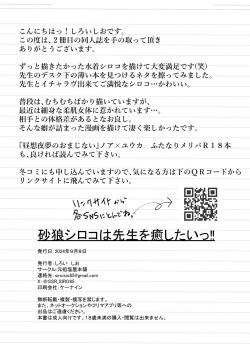 こんにちはっ！しろいしおです。
この度は、2冊目の同人誌を手の取って頂き
ありがとうございます。
ずっと描きたかった水着シロコを描けて大変満足です(笑)
先生のデスク下の薄い本を見つけるネタを擦ってみました。
先生とイチャラヴ出来てご満悦なシロコ…かわいい。
普段は、むちむちばかり描いていますが、
最近は細身な柔肌な体形に惹かれています…。
相手との体格差があるとなお良し。
そんな癖が詰まった漫画を描けて凄く楽しかったです。
「昼想夜夢のおまじない」ノア×ユウカ ふたなりメリバR18本
も、良ければ読んでみて下さい。
冬コミにも申し込んでいますので、気になる方は下のQRコードから
リンクサイトに飛んでみて下さい。
リンクサイトから
各SNSにとんでね。
砂狼シロコは先生を癒したいっ!!
発行日:2024年9月8日
発行者:しろい しお
サークル:元伯塩屋本舗
連絡先:siroiosi85@gmail.com
X:@SSR_SIRO85
印刷会社:ケーナイン
無断転載・複製・複写を禁じます。
また、ネットオークションやフリマアプリ等への
出品はご遠慮ください。
本書は成人向けです。18歳未満の購入・閲覧は出来ません。